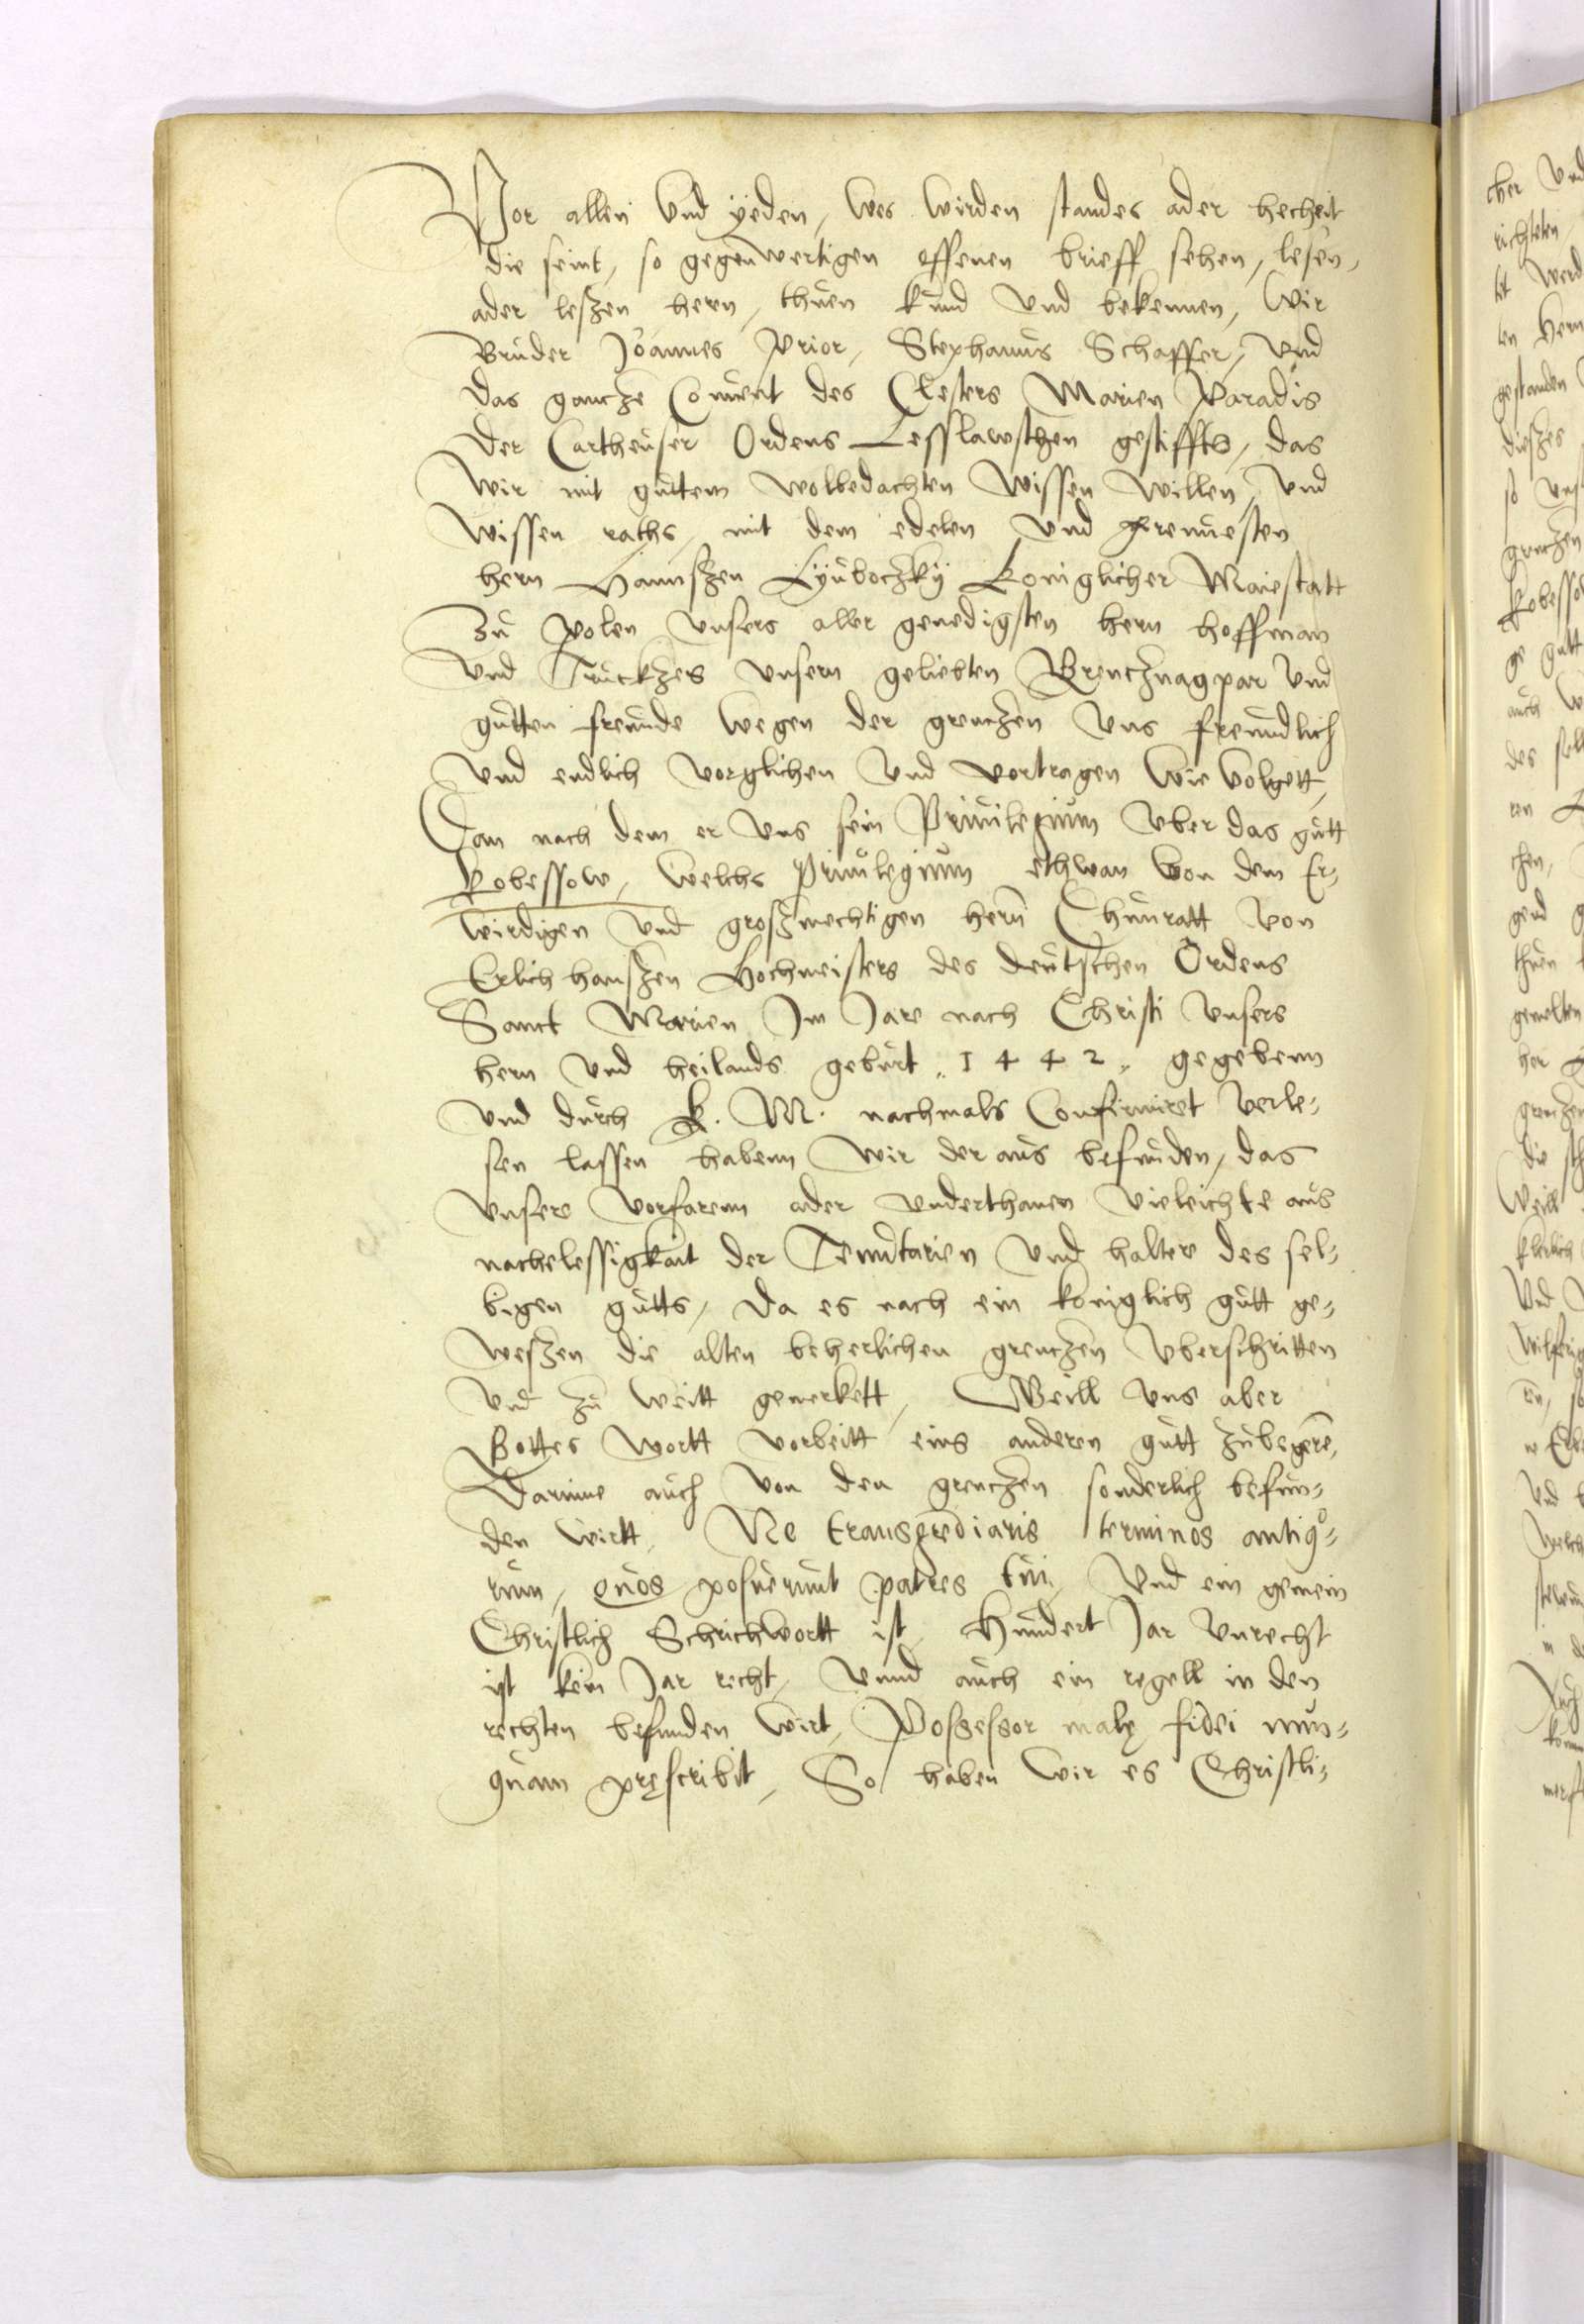 Vor allen vnd ÿeden, wes wirden standes ader hocheit
die seint, so gegenwertigen offenen brieff sehen, lesen,
ader leszen hern, thuen kund vnd bekennen, Wir
Bruder Joannes Prior, Stephanus Schaffer, vnd
das gantcze Conuent des Closters Marien Paradis
der Cartheuser Ordens Lesslawschen gestiffts, das
wir mit guttem wolbedachten wissen willen, vnd
wissen raths, mit dem edelen vnd erenuesten
hern Hannszen Lÿuboczkÿ Koniglicher Maiestatt
zu Polen vnsers aller genedigsten hern hoffman
vnd Truckzes vnsern geliebten Grencznagpar vnd
gutten freunde wegen der grenczen vns freundlich
vnd endlich vorglichen vnd vortragen wie volgett,
Dan nach dem er vns sein Priuilegium vber das gutt
Kobessow, welchs Priuilegium ethwan von dem Er-
wirdigen vnd groszmechtigen hern Chunratt von
Erlichhauszen Hochmeisters des deutschen Ordens
Sanct Marien Im Jare nach Christi vnsers
hern vnd heilands geburt 1442 gegebenn
vnd durch K. M. nachmals Confirmiret verle-
sen lassen habenn wir der aus befunden, das
vnsere vorfarenn ader vnderthanen vieleichte aus
nachelessigkait der Tenutarien vnd halter des sel-
bigen gutts, da es nach ein koniglich gutt ge-
weszen die alten beherlichen grenczen vberschritten
vnd zu weitt gemerkett, Weill vns aber
Gottes wortt vorbeitt eins anderen gutt zubegere,
Darinne auch von den grenczen sonderlich befun-
den wirtt, Ne transgrediaris terminos antiqo-
rum, quos posuerunt patres tui, Vnd ein gemein
Christlich Schrichwortt ist, Hundert Jar vnrecht
ist kein Jar recht, vnnd auch ein regell in den
rechten befunden wirt, Possessor malę fidei nun-
quam pręscribit, So haben wir es Christli-